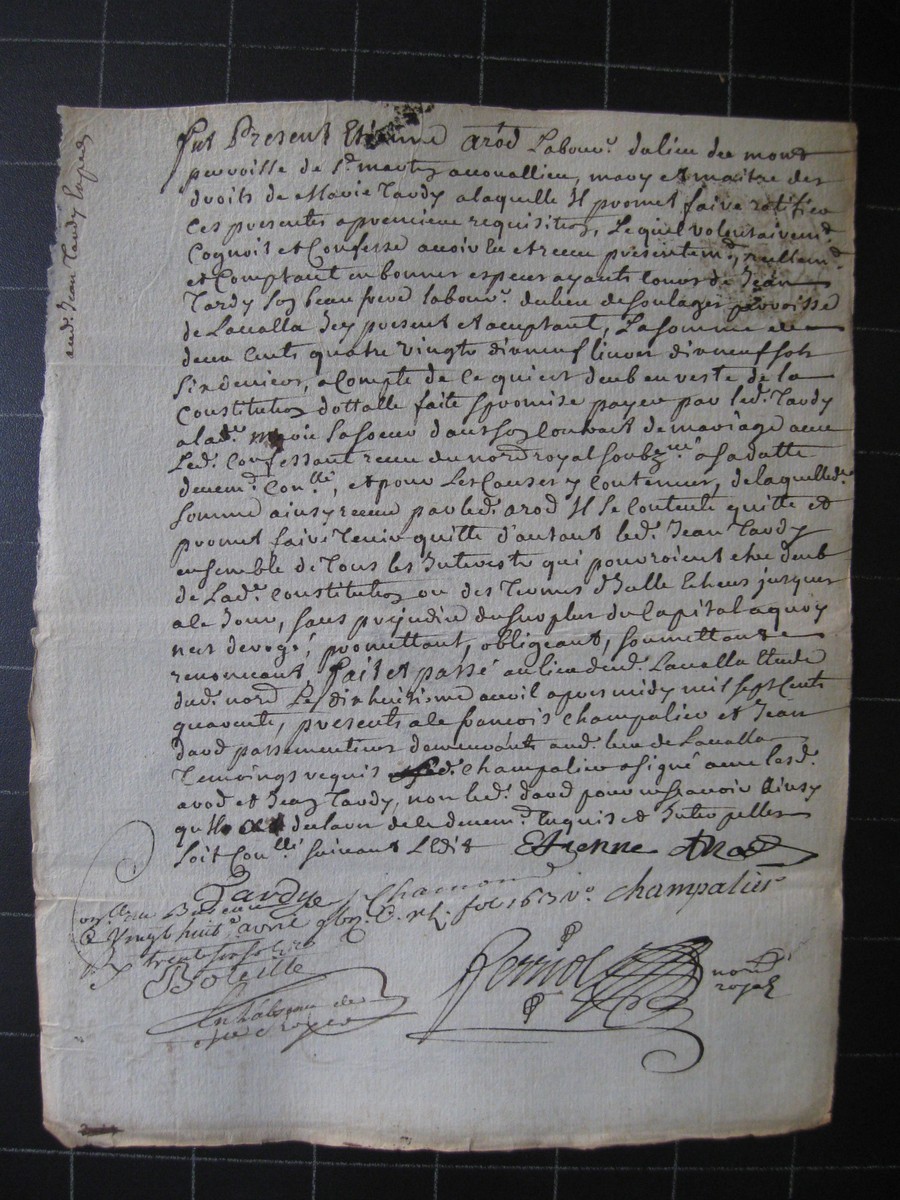 Fut Present Etienne arod Labour.r du lieu du mont
parroisse de S.t martin acouallieu, mary et maitre des
droits de Marie Tardy a laquelle Il promet faire ratifier
ces presentes a premiere requisition, Lequel volontairem.t
Cognoit et Confesse avoir eu et receu présentem.t, reellem.t
et Comptant en bonnes especes ayants cours de Jean
Tardy son beau frere labour.r du lieu de soulages parroisse
de Lavalla Icy present et acceptant, La somme de
deux cents quatre vingts dix neuf livres dix neuf sols
six deniers, a Compte de ce qui est deub en reste de la
Constitution dottalle faite et promise payer par led.t Tardy
a lad.e marie sa soeur dans son Contract de mariage avec
Led.t Confessant receu du no.re royal soubz.né a sa datte
deuem.t Con.llé, et pour Les Causes y Contenues, de laquelle d.e
somme ainsy receue par led.t arod Il se contente quitte et
promet faire tenir quitte d'autant led.t Jean Tardy
ensemble de Tous les Interests qui pourroient etre deub
de Lad.e Constitution ou des Termes d'Icelle Echeus jusques
a ce Jour, sans prejudice du surplus du Capital a quoy
n'est derogé, promettant, obligeant, soumettant
renonceant fait et passé au lieu dud.t Lavalla Etude
dud.t no.re Le dix huitieme avril apres midy mil sept Cents
quarante, presents a ce francois Champalier et Jean
david passementiers demeurants aud.t lieu de Lavalla
Temoings requis led.t Champalier a signé avec lesd.ts
arod et Jean Tardy, non led.t david pour ne scavoir ainsy
qu'Il a declaré de ce deuem.t Enquis et Interpellés
soit Con.llé suivant L'Edit Etienne Arod
Tardy champalier
Vingt huit avril fol 163 N.o
Boteille
Ferriol no.re
royal
aud.t Jean Tardy